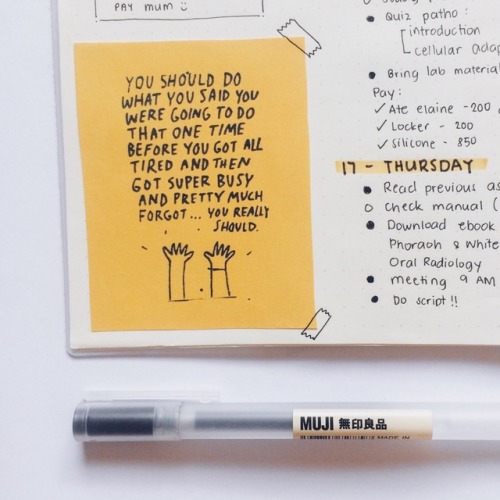 PAY mum
YOU SHOULD DO
WHAT YOU SAID YOU
WERE GOING TO DO
THAT ONE TIME
BEFORE YOU GOT ALL
TIRED AND THEN
GOT SUPER BUSY
AND PRETTY MUCH
FORGOT... YOU REALLY
SHOULD.
Quiz patho:
introduction
cellular
Bring lab material
Pay:
✓ Ate elaine - 200
✓ Locker - 200
✓ Silicone - 850
17 - THURSDAY
Read previous
check manual (
Download ebook
Pharaoh & White
Oral Radiology
meeting 9 AM
Do script!!
MUJI 無印良品
MADE IN